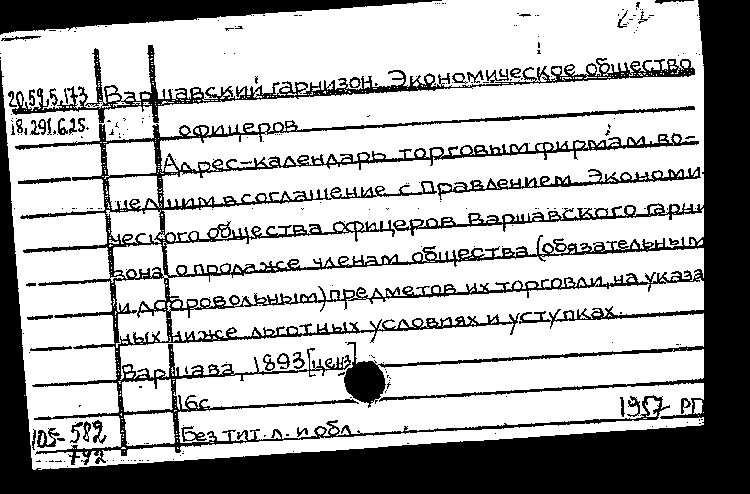 20.59.5.173 Варшавский гарнизон. Экономическое общество
18.291.6.25. офицеров
Адрес-календарь торговым фирмам, во-
шедшим в соглашение с Правлением Экономи
ческого общества офицеров Варшавского гарни
зона о продаже членам общества (обязательным
и добровольным) предметов их торговли, на указа
ных ниже льготных условиях и уступках.
Варшава, 1893 [ценз]
16с.
105-582 Без тит. л. и обл. 1957 РП
792